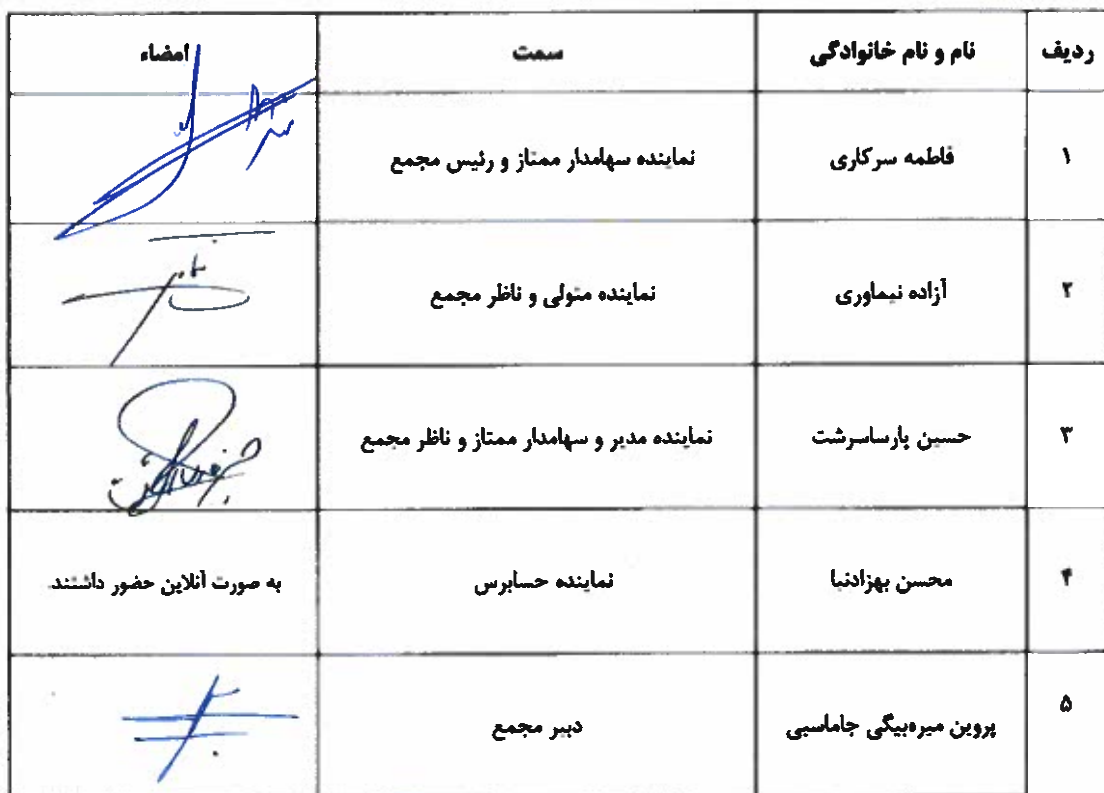 ردیف نام و نام خانوادگی سمت امضاء
۱ فاطمه سرکاری نماینده سهامدار ممتاز و رئیس مجمع
۲ آزاده نیماوری نماینده متولی و ناظر مجمع
۳ حسین پارساسرشت نماینده مدیر و سهامدار ممتاز و ناظر مجمع
۴ محسن بهزادنیا نماینده حسابرس به صورت آنلاین حضور داشتند
۵ پروین میره‌بیگی جاماسبی دبیر مجمع